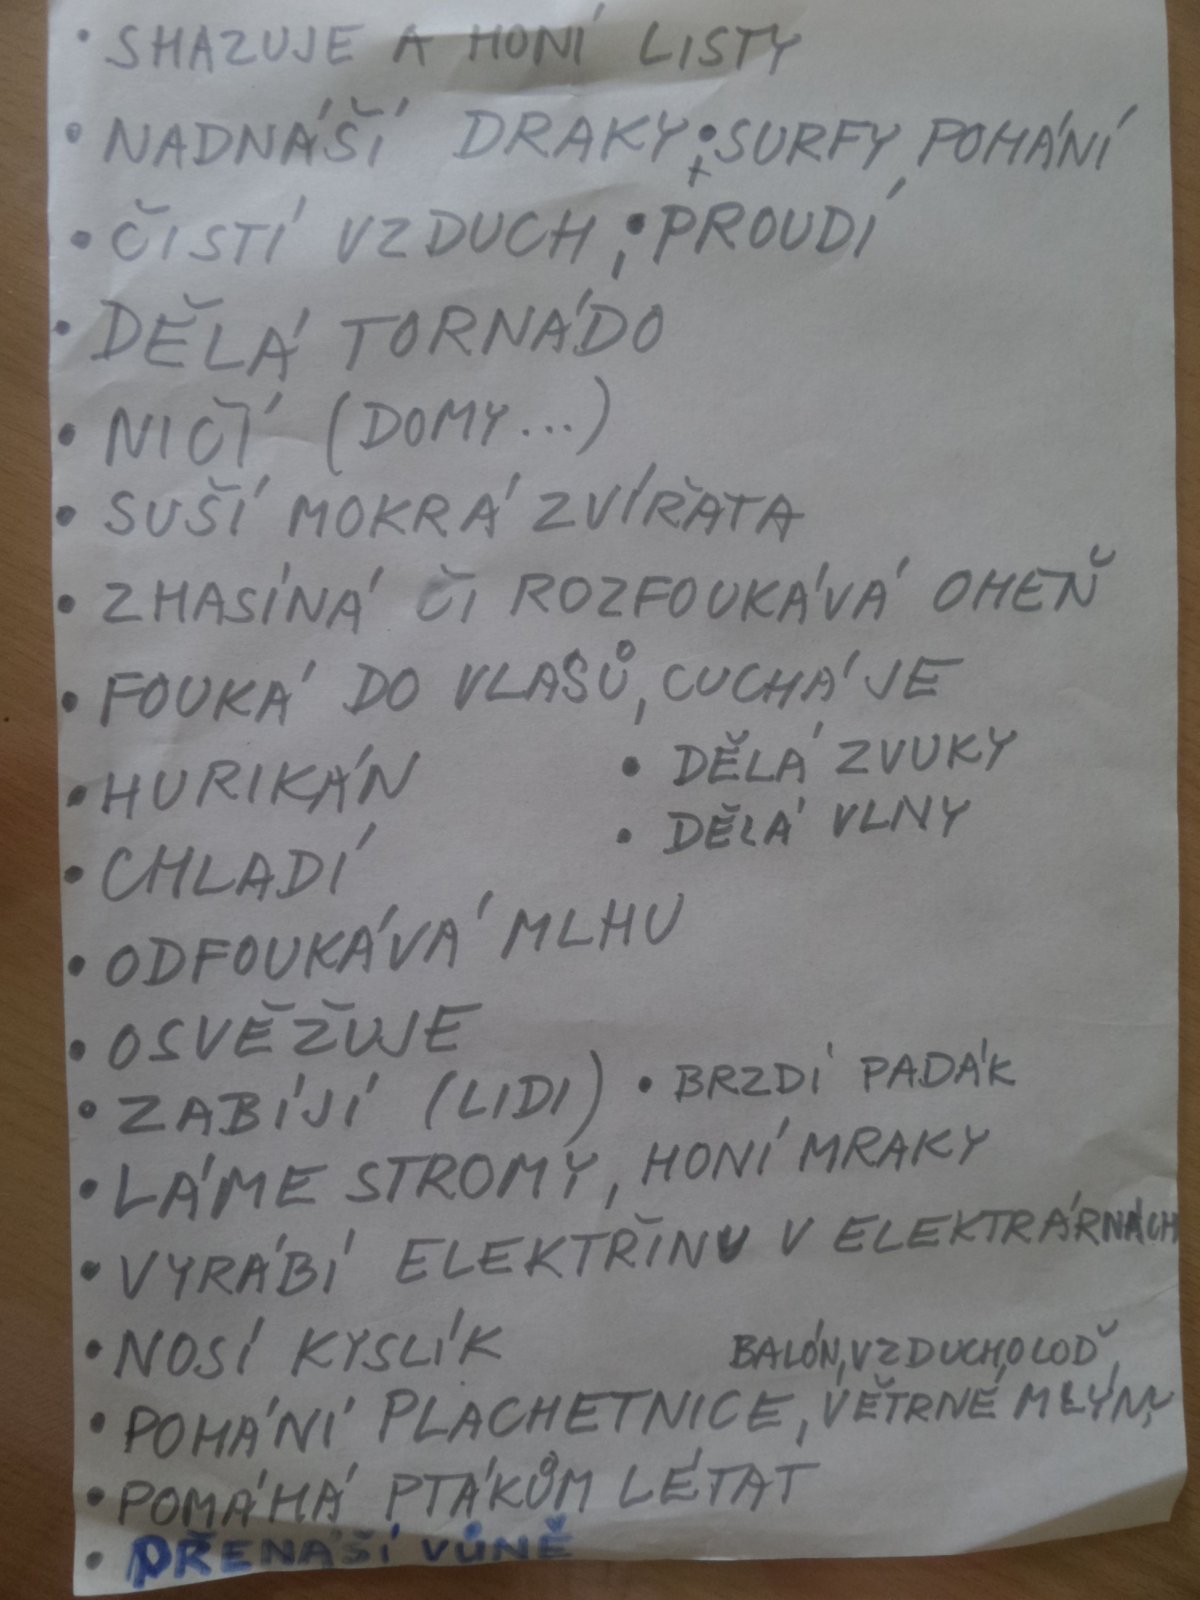 • SHAZUJE A HONÍ LISTY
• NADNÁŠÍ DRAKY + • SURFY POHÁNÍ
• ČISTÍ VZDUCH, • PROUDÍ
• DĚLÁ TORNÁDO
• NIČÍ (DOMY...)
• SUŠÍ MOKRÁ ZVÍŘATA
• ZHASÍNÁ ČI ROZFOUKÁVÁ OHEŇ
• FOUKÁ DO VLASŮ, CUCHÁ JE
• HURIKÁN • DĚLÁ ZVUKY
• DĚLÁ VLNY
• CHLADÍ
• ODFOUKÁVÁ MLHU
• OSVĚŽUJE
• ZABÍJÍ (LIDI) • BRZDÍ PADÁK
• LÁME STROMY, HONÍ MRAKY
• VYRÁBÍ ELEKTŘINU V ELEKTRÁRNÁCH
• NOSÍ KYSLÍK BALÓN, VZDUCHOLOĎ,
• POHÁNÍ PLACHETNICE, VĚTRNÉ MLÝNY
• POMÁHÁ PTÁKŮM LÉTAT
• PŘENÁŠÍ VŮNĚ